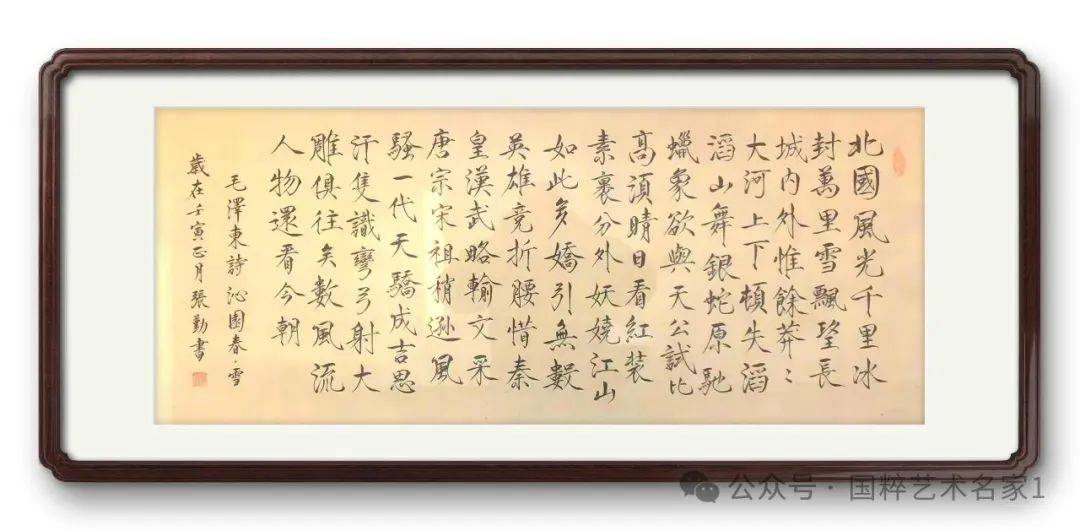 北國風光千里冰
封萬里雪飄望長
城内外惟餘莽〻
大河上下頓失滔
滔山舞銀蛇原馳
蠟象欲與天公試比
高須晴日看紅装
素裹分外妖嬈江山
如此多嬌引無數
英雄竞折腰惜秦
皇漢武略輸文采
唐宗宋祖稍遜風
騷一代天驕成吉思
汗隻識彎弓射大
雕俱往矣數風流
人物還看今朝
毛澤東詩沁園春·雪
歲在壬寅正月張勤書
公众号·国粹艺术名家1